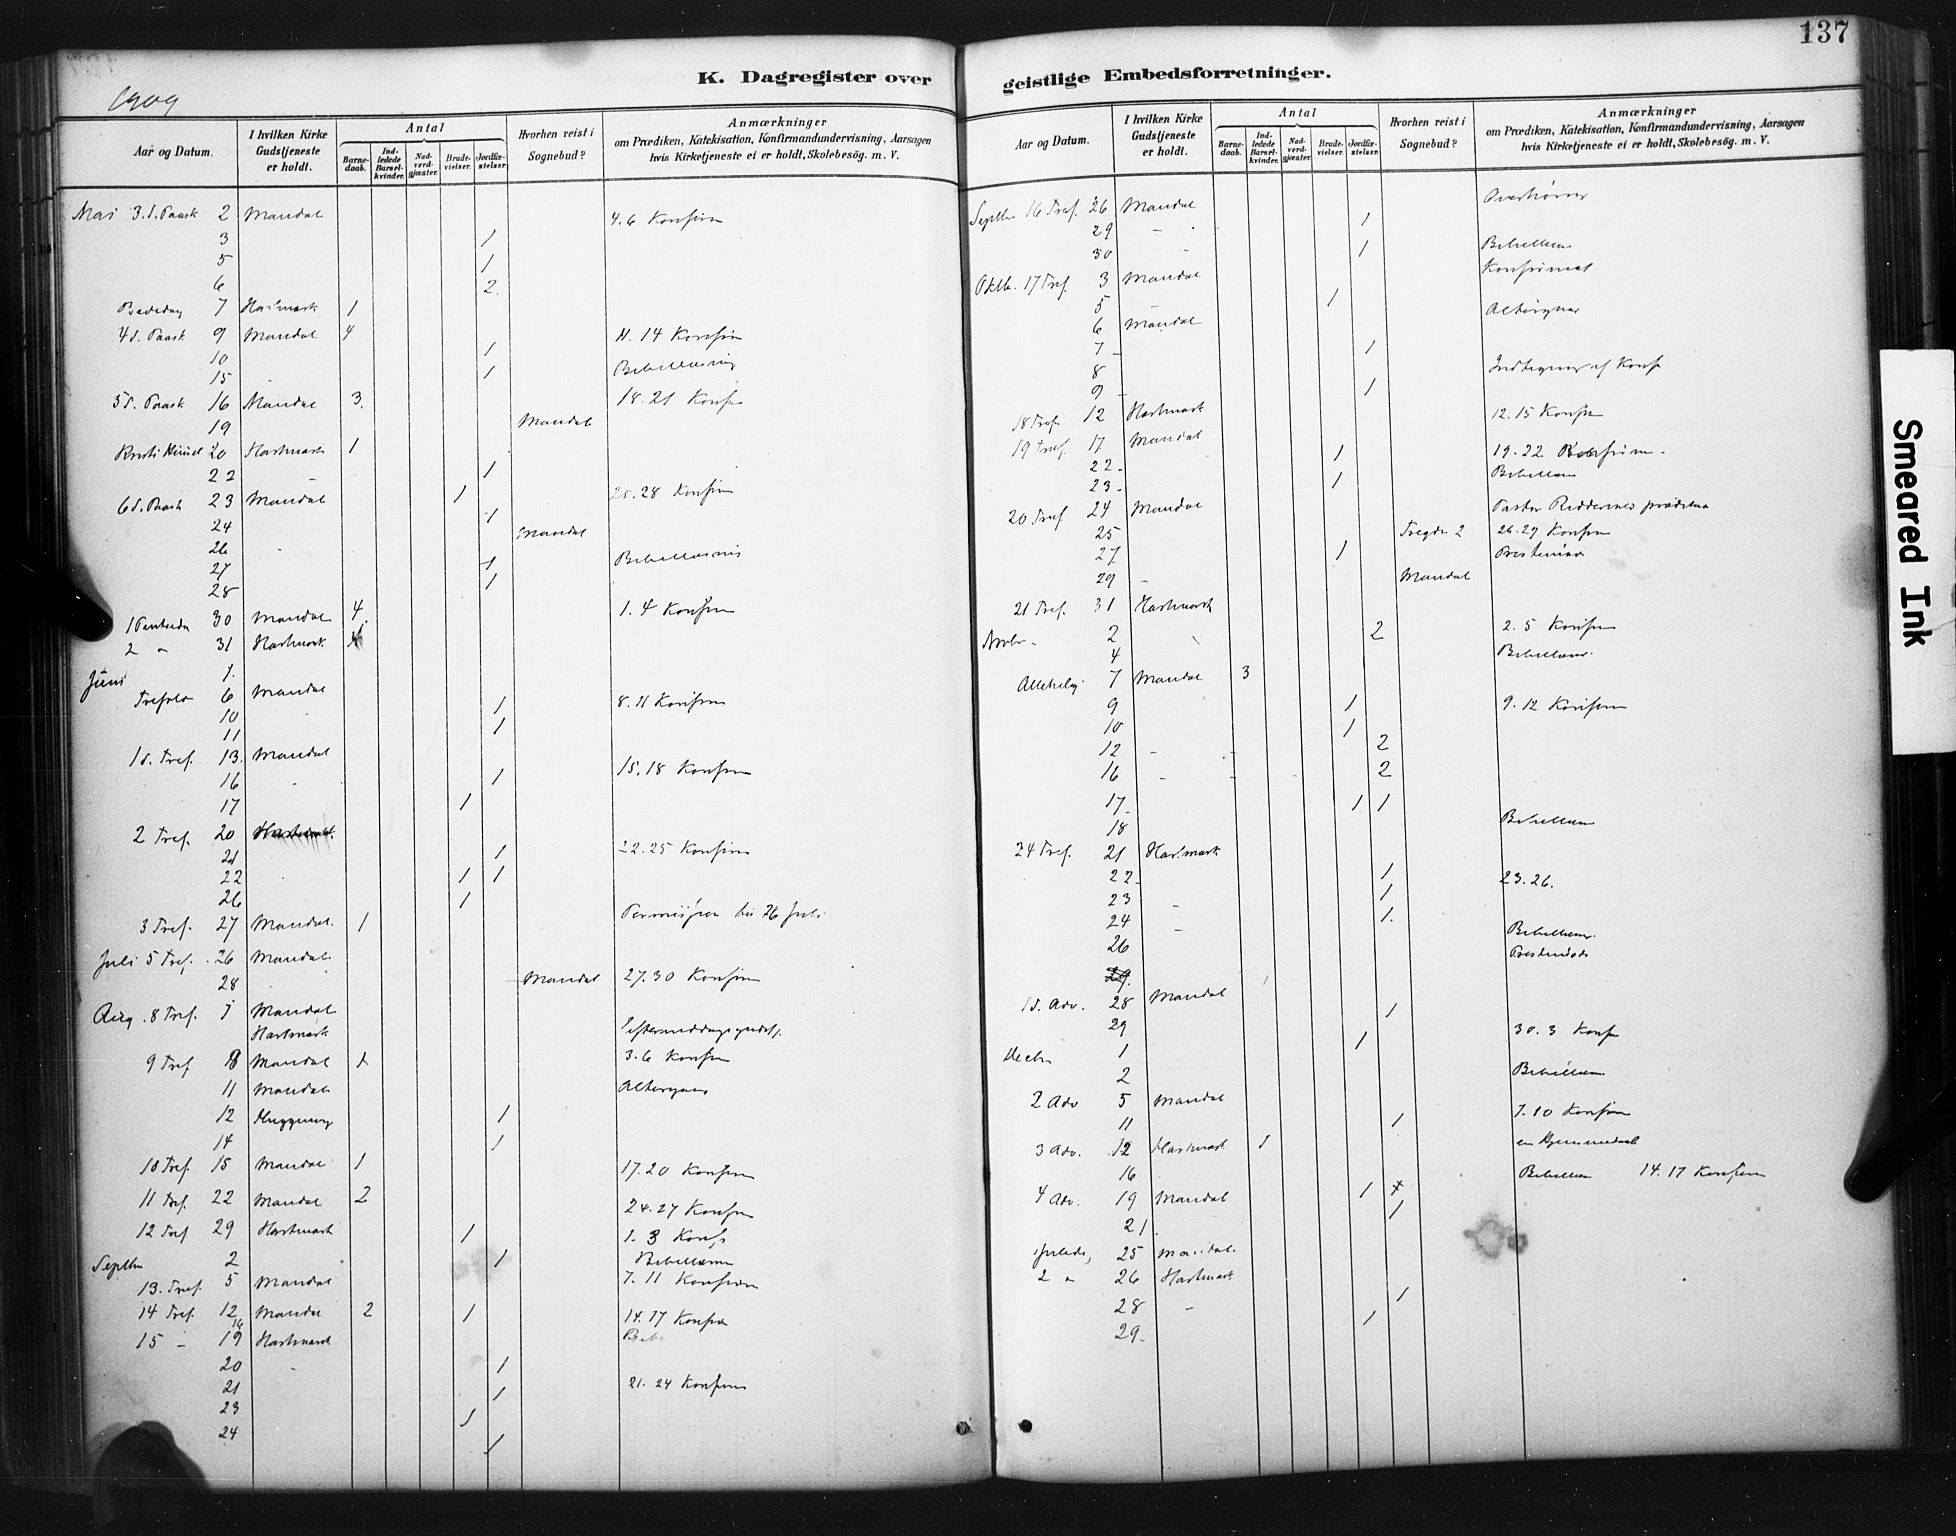 137
K. Dagregister over geistlige Embedsforretninger.
1909
Aar og Datum.
I hvilken Kirke Gudstjeneste er holdt.
Antal
Barnedaab.
Indledede Barselkvinder.
Nadverdgjæster.
Brudevielser.
Jordfæstelser.
Hvorhen reist i Sognebud?
Anmærkninger
om Prædiken, Katekisation, Konfirmandundervisning, Aarsagen
hvis Kirketjeneste ei er holdt, Skolebesøg. m. V.
Mai 3. S. Paask 2 Mandal 4.6 Konfirm
3 1
5 1
6 2.
Bededag 7 Hartmark 1
4 S. Paask 9 Mandal 4 11.14 Konfirm
10 1
15 1 Bibellæsning
5 S. Paask 16 Mandal 3. 18.21 Konfir
19 Mandal
Kristi Himmel 20 Hartmark 1
22 1
6 S. Paask 23 Mandal 1 25.28 Konfirm
24 1
26 Mandal
27 1 Bibellæsning
28 1
30 Mandal 4. 1.4 Konfirm
2 " 31 Hartmark
Juni 1.
6 Mandal 8.11 Konfirm
10 1
11 1
1 S. Tref. 13. Mandal 15.18 Konfirm
16 1
17 1
2 Tref. 20 Hartmark.
21 1 22.25 Konfirm
22 1 1
26 1
3 Tref. 27 Mandal. 1 Permission til 26 Juli
Juli 5 Tref. 26 Mandal.
28 Mandal 27.30 Konfirm
Aug. 8 Tref. 1 Mandal
Hartmark Eftermiddagsgudst.
9 Tref 8 Mandal 1 3.6 Konfirm
11 Mandal Altergang
12 1
14 1
10 Tref. 15 Mandal 1 17.20 Konfirm
11 Tref. 22 Mandal 2 24.27 Konfirm
12 Tref 29 Hartmark 1 1.3 Konf.
Septbr 2 1 Bibellæsn
13. Tref. 5 Mandal 7.11 Konfirm
14 Tref. 12 Mandal 2 1 14.17 Konfir
15 - 19 Hartmark
20 1
21 1 21.24 Konfirm
23 1
24 1
Aar og Datum.
I hvilken Kirke Gudstjeneste er holdt.
Antal
Barnedaab.
Indledede Barselkvinder.
Nadverdgjæster.
Brudevielser.
Jordfæstelser.
Hvorhen reist i Sognebud?
Anmærkninger
om Prædiken, Katekisation, Konfirmandundervisning, Aarsagen
hvis Kirketjeneste ei er holdt, Skolebesøg. m. V.
Septbr 16 Tref. 26 Mandal Overhøring
29 - 1
30 - 1 Bibellæsn
Oktb. 17 Tref. 3 Mandal Konfirmat
5 - 1
6 Mandal Altergang
7 - 1
8 Indtegning af Konf
9 - 1
18 Tref. 12 Hartmark 12.15 Konfirm
19 Tref. 17 Mandal
22 - 1 19.22 Konfirm.
23 - 1 Bibellæsn
20 Tref 24 Mandal Pastor
25 Tregde 2 26.29 Konfirm
27 1 Prestemøde
29 - Mandal
21 Tref. 31 Hartmark
Novbr - 2 2 2.5 Konfirm
4 Bibellæsn.
Allehelg. 7 Mandal 3
9 1 9.12 Konfirm
10 1
12 - 2
16 - 2
17 - 1 1
18 Bibellæsn
24 Tref. 21 Hartmark
22 - 1 23.26.
23 - 1
24 - 1.
26 Bibellæsn.
29. Prestemøde
1 S. Adv. 28 Mandal
29 1
Decbr 1 1 30.3 Konfir
2 Bibellæsn.
2 Adv 5 Mandal
11 1 7.10 Konfirm
3 Adv. 12 Hartmark 1 en Hjemmedaab
16 Bibellæsn 14.17 Konfirm
4 Adv. 19 Mandal 1
21 1
Juledag 25 Mandal.
2 " 26 Hartmark
28 - 1
29 - 1
Smeared Ink